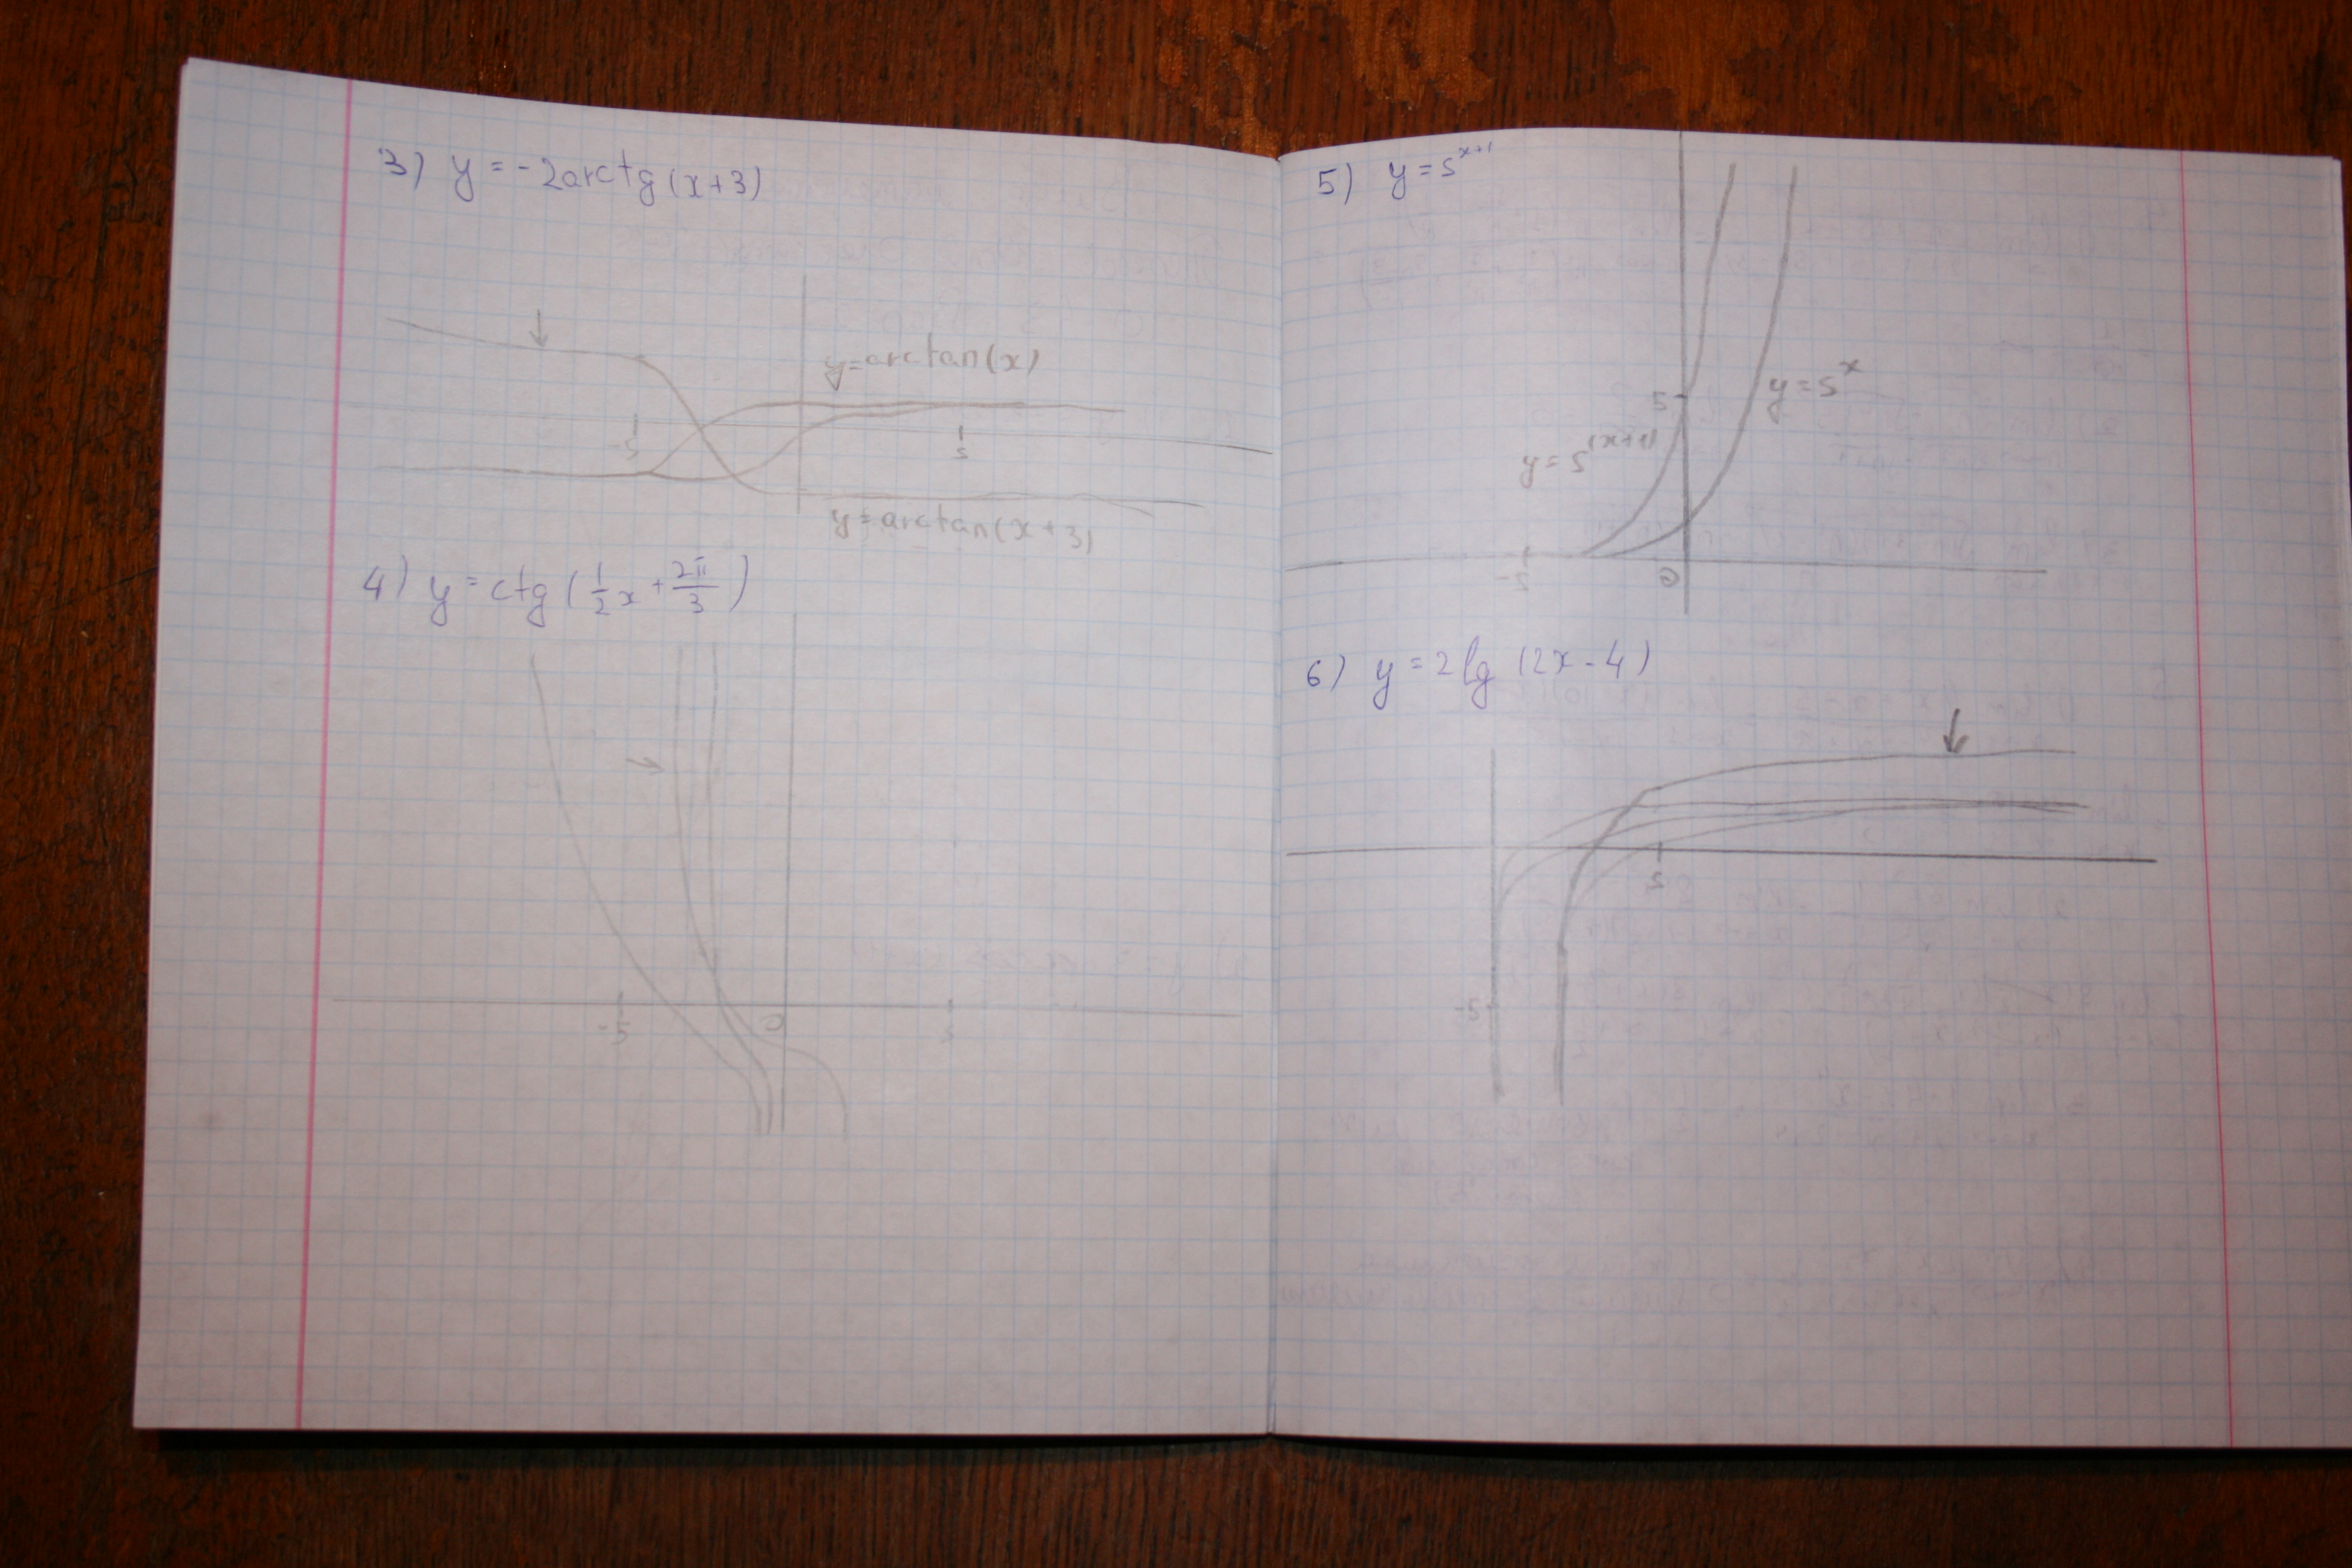 3) y = -2arctg(x+3)
y=arctan(x)
-5
5
y=arctan(x+3)
4) y = ctg(1/2x + 2π/3)
-5
0
5
5) y = 5^x+1
y=5^x
5
y=5^(x+1)
-5
0
6) y = 2lg(2x-4)
5
-5